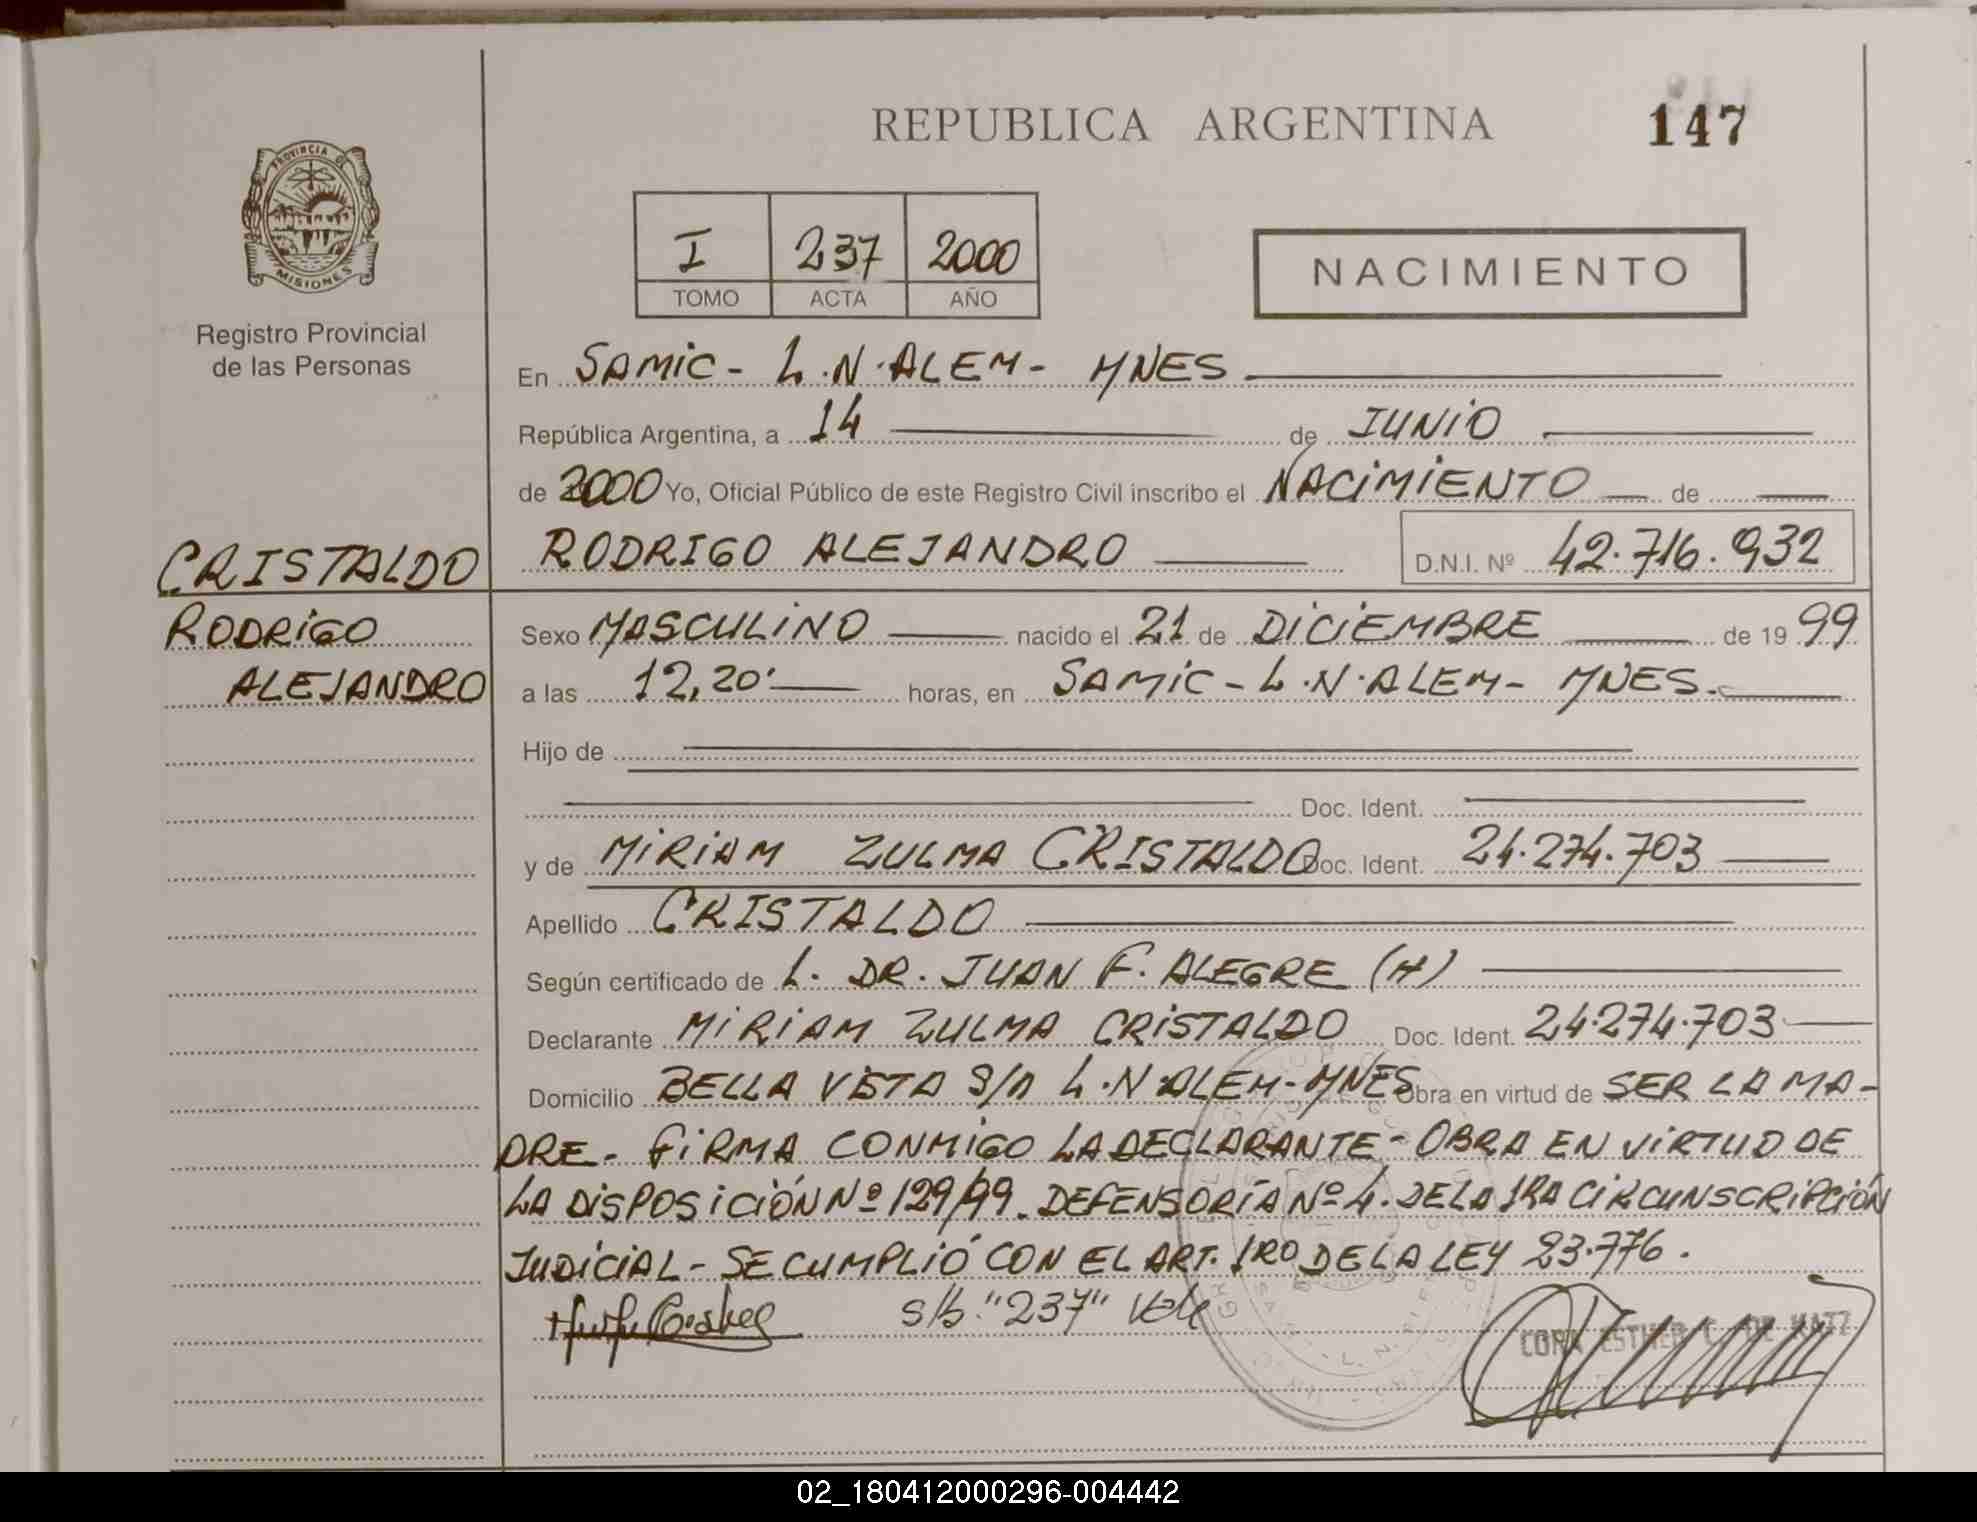 REPUBLICA ARGENTINA
147
PROVINCIA DE
MISIONES
Registro Provincial
de las Personas
I 237 2000
TOMO ACTA AÑO
NACIMIENTO
En SAMIC - L.N.ALEM - MNES
República Argentina, a 14 de JUNIO
de 2000 Yo, Oficial Público de este Registro Civil inscribo el NACIMIENTO de
CRISTALDO
RODRIGO
ALEJANDRO
RODRIGO ALEJANDRO D.N.I. Nº 42.716.932
Sexo MASCULINO nacido el 21 de DICIEMBRE de 19 99
a las 12,20' horas, en SAMIC - L.N.ALEM - MNES.
Hijo de
Doc. Ident.
y de MIRIAM ZULMA CRISTALDO Doc. Ident. 24.274.703
Apellido CRISTALDO
Según certificado de L. DR. JUAN F. ALEGRE (H)
Declarante MIRIAM ZULMA CRISTALDO Doc. Ident. 24.274.703
Domicilio BELLA VISTA S/n L.N.ALEM-MNES Obra en virtud de SER LA MA-
DRE. FIRMA CONMIGO LA DECLARANTE - OBRA EN VIRTUD DE
LA DISPOSICIÓN Nº 129/99. DEFENSORÍA Nº 4. DE LA 1RA CIRCUNSCRIPCIÓN
JUDICIAL - SE CUMPLIÓ CON EL ART. 1RO DE LA LEY 23.776.
s/b. "237" Vale
CORA ESTHER C. DE KATZ
02_180412000296-004442